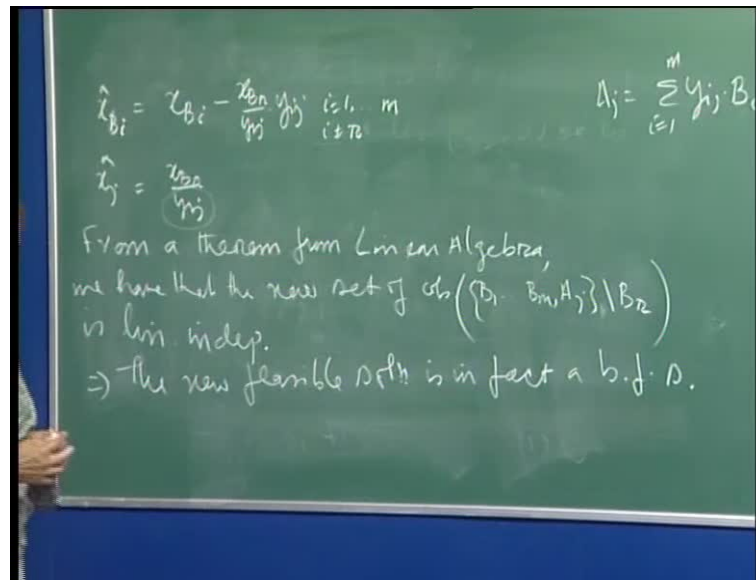 x̂_Bi = x_Bi − (x_Br / y_rj) y_ij i=1, .. m
i≠r
A_j = Σ_{i=1}^{m} y_ij . B
x̂_j = x_Br / y_rj
From a theorem from Linear Algebra,
we have that the new set of cols ({B_1 .. B_m, A_j} \ B_r)
is lin. indep.
⇒ The new feasible soln is in fact a b.f.s.